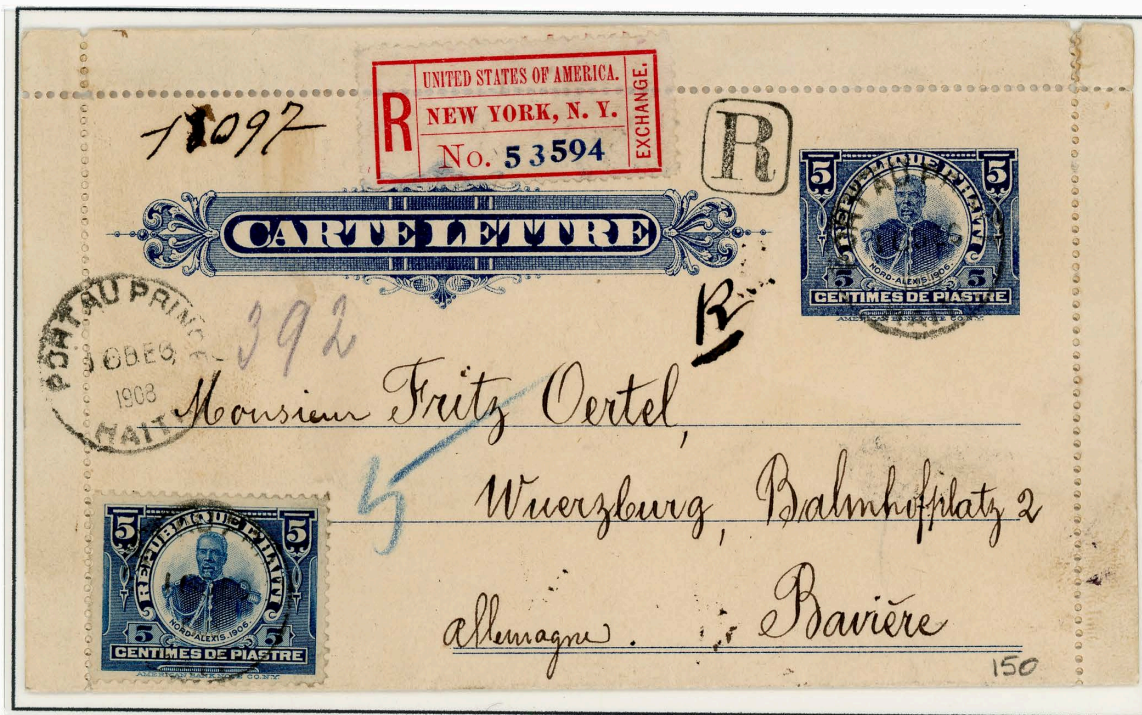 UNITED STATES OF AMERICA.
R NEW YORK, N. Y. EXCHANGE.
No. 53594
R
5 5
REPUBLIQUE D'HAITI
NORD-ALEXIS. 1906.
5 5
CENTIMES DE PIASTRE
AMERICAN BANK NOTE CO. N.Y.
CARTE LETTRE
PORT AU PRINCE
DEC
1908
HAITI
392
R
Monsieur Fritz Oertel,
5
Wuerzburg, Bahnhofplatz 2
Allemagne. Bavière
5 5
REPUBLIQUE D'HAITI
NORD-ALEXIS. 1906.
5 5
CENTIMES DE PIASTRE
AMERICAN BANK NOTE CO. N.Y.
150